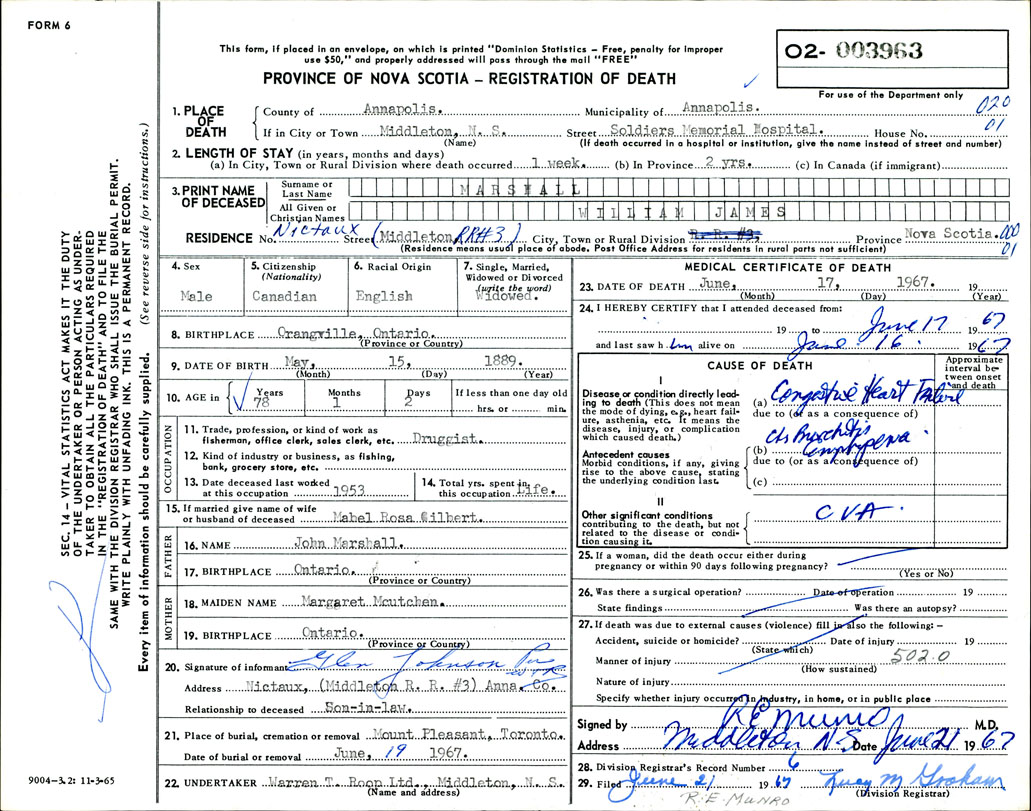 FORM 6
This form, if placed in an envelope, on which is printed "Dominion Statistics – Free, penalty for improper
use $50," and properly addressed will pass through the mail "FREE"
PROVINCE OF NOVA SCOTIA – REGISTRATION OF DEATH
02- 003963
For use of the Department only
020
01
1. PLACE OF DEATH
County of Annapolis. Municipality of Annapolis.
If in City or Town Middleton, N. S. Street Soldiers Memorial Hospital. House No.
(Name) (If death occurred in a hospital or institution, give the name instead of street and number)
2. LENGTH OF STAY (in years, months and days)
(a) In City, Town or Rural Division where death occurred 1 week. (b) In Province 2 yrs. (c) In Canada (if immigrant)
3. PRINT NAME OF DECEASED
Surname or Last Name MARSHALL
All Given or Christian Names WILLIAM JAMES
RESIDENCE No. Nictaux Street (Middleton RR#3) City, Town or Rural Division R. R. #3, Province Nova Scotia. 000
01
(Residence means usual place of abode. Post Office Address for residents in rural parts not sufficient)
4. Sex
Male
5. Citizenship
(Nationality)
Canadian
6. Racial Origin
English
7. Single, Married,
Widowed or Divorced
(write the word)
Widowed.
8. BIRTHPLACE Orangville, Ontario.
(Province or Country)
9. DATE OF BIRTH May, 15, 1889.
(Month) (Day) (Year)
10. AGE in Years Months Days If less than one day old
78 1 2 hrs. or min.
OCCUPATION
11. Trade, profession, or kind of work as
fisherman, office clerk, sales clerk, etc. Druggist.
12. Kind of industry or business, as fishing,
bank, grocery store, etc.
13. Date deceased last worked
at this occupation 1953
14. Total yrs. spent in
this occupation Life.
15. If married give name of wife
or husband of deceased Mabel Rosa Gilbert.
FATHER
16. NAME John Marshall.
17. BIRTHPLACE Ontario.
(Province or Country)
MOTHER
18. MAIDEN NAME Margaret Mcutchen.
19. BIRTHPLACE Ontario.
(Province or Country)
20. Signature of informant Glen Johnson Per
WTR
Address Nictaux, (Middleton R. R. #3) Anna. Co.
Relationship to deceased Son-in-law.
21. Place of burial, cremation or removal Mount Pleasant, Toronto.
Date of burial or removal June, 19 1967.
22. UNDERTAKER Warren T. Roop Ltd., Middleton, N. S.
(Name and address)
MEDICAL CERTIFICATE OF DEATH
23. DATE OF DEATH June, 17, 1967. 19
(Month) (Day) (Year)
24. I HEREBY CERTIFY that I attended deceased from:
19 to June 17 19 67
and last saw h im alive on June 16 1967
CAUSE OF DEATH
Approximate
interval be-
tween onset
and death
I
Disease or condition directly lead-
ing to death (This does not mean
the mode of dying, e.g., heart fail-
ure, asthenia, etc. It means the
disease, injury, or complication
which caused death.)
(a) Congestive Heart Failure
due to (or as a consequence of)
Antecedent causes
Morbid conditions, if any, giving
rise to the above cause, stating
the underlying condition last.
Ch Bronchitis
(b) Emphysema
due to (or as a consequence of)
(c)
II
Other significant conditions
contributing to the death, but not
related to the disease or condi-
tion causing it.
CVA.
25. If a woman, did the death occur either during
pregnancy or within 90 days following pregnancy?
(Yes or No)
26. Was there a surgical operation? Date of operation 19
State findings Was there an autopsy?
27. If death was due to external causes (violence) fill in also the following: –
Accident, suicide or homicide? Date of injury 19
(State which)
Manner of injury 502.0
(How sustained)
Nature of injury
Specify whether injury occurred in industry, in home, or in public place
Signed by R E Munro M.D.
Address Middleton N.S. Date June 21 1967
28. Division Registrar's Record Number 6
29. Filed June 21 1967 Lucy M Graham
(Division Registrar)
R. E. MUNRO
9004–3.2: 11-3-65
SEC. 14 – VITAL STATISTICS ACT MAKES IT THE DUTY
OF THE UNDERTAKER OR PERSON ACTING AS UNDER-
TAKER TO OBTAIN ALL THE PARTICULARS REQUIRED
IN THE "REGISTRATION OF DEATH" AND TO FILE THE
SAME WITH THE DIVISION REGISTRAR WHO SHALL ISSUE THE BURIAL PERMIT.
WRITE PLAINLY WITH UNFADING INK. THIS IS A PERMANENT RECORD.
Every item of information should be carefully supplied. (See reverse side for instructions.)